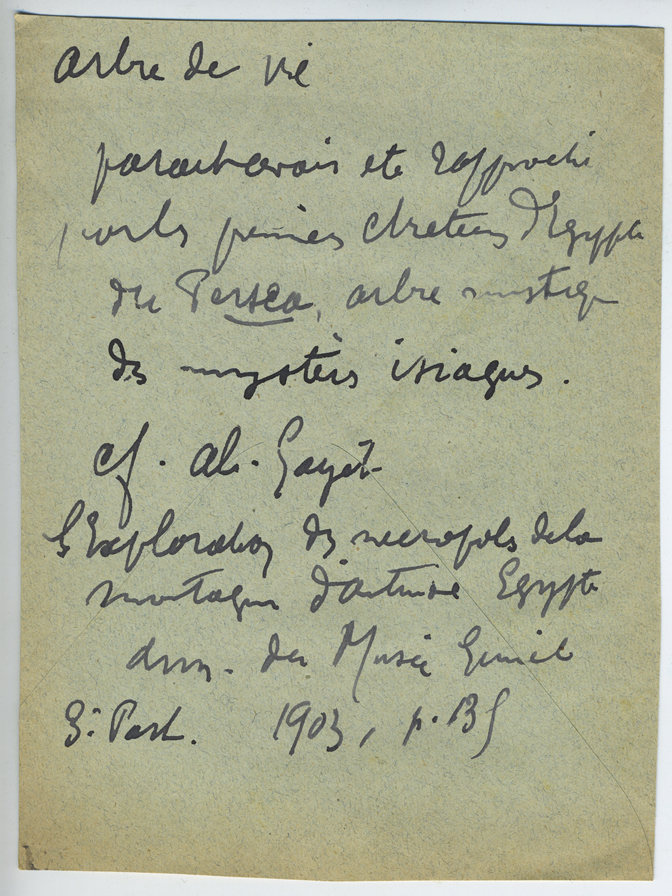 arbre de vie
paraît avoir été rapproché
par les premiers chrétiens d'Egypte
du Persea, arbre mystique
des mystères isiaques.
cf. al. Gayet
L'Exploration des necropoles de la
montagne d'Antinoé Egypte
Ann. du Musée Guimet
3e Part. 1903, p. 135